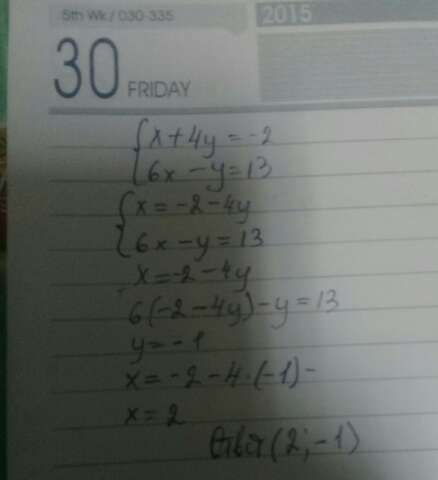 5th Wk / 030-335
2015
30 FRIDAY
{x+4y=-2
{6x-y=13
{x=-2-4y
{6x-y=13
x=-2-4y
6(-2-4y)-y=13
y=-1
x=-2-4·(-1)-
x=2
Ответ (2;-1)